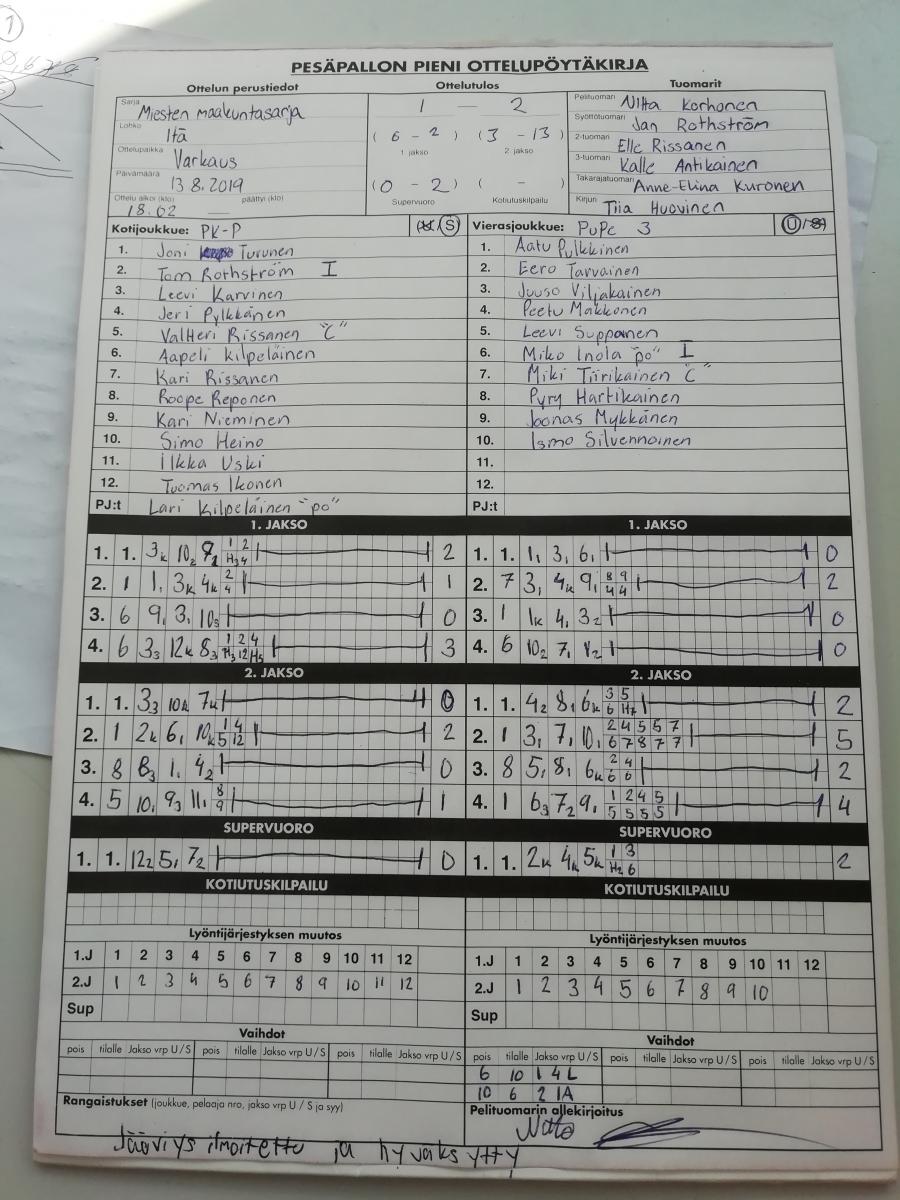 PESÄPALLON PIENI OTTELUPÖYTÄKIRJA
Ottelun perustiedot
Sarja
Miesten maakuntasarja
Lohko
Itä
Ottelupaikka
Varkaus
Päivämäärä
13 8.2019
Ottelu alkoi (klo) päättyi (klo)
18.02 —
Ottelutulos
1 — 2
(6 - 2) (3 - 13)
1 jakso 2. jakso
(0 - 2) ( - )
Supervuoro Kotiutuskilpailu
Tuomarit
Pelituomari Niita Korhonen
Syöttötuomari Jan Rothström
2-tuomari Elle Rissanen
3-tuomari Kalle Antikainen
Takarajatuomari Anne-Elina Kuronen
Kirjuri Tiia Huovinen
Kotijoukkue: PK-P S
1. Joni Turunen
2. Tom Rothström I
3. Leevi Karvinen
4. Jeri Pylkkänen
5. Valtteri Rissanen "C"
6. Aapeli Kilpeläinen
7. Kari Rissanen
8. Roope Reponen
9. Kari Nieminen
10. Simo Heino
11. Ilkka Uski
12. Tuomas Ikonen
PJ:t Lari Kilpeläinen "po"
Vierasjoukkue: PuPe 3 U/S
1. Aatu Pulkkinen
2. Eero Tarvainen
3. Juuso Viljakainen
4. Peetu Makkonen
5. Leevi Suppanen
6. Miko Inola "po" I
7. Miki Tiirikainen "C"
8. Pyry Hartikainen
9. Joonas Mykkänen
10. Ismo Silvennoinen
11.
12.
PJ:t
1. JAKSO
1. 1. 3k 10₂ 7₂ 2
2. 1 1, 3k 4k 2/4 1
3. 6 9, 3, 10₃ 0
4. 6 3₃ 12k 8₃ 3
1. JAKSO
1. 1. 1, 3, 6, 0
2. 7 3, 4k 9, 8/4 9/4 2
3. 1 1k 4, 3₂ 0
4. 6 10₂ 7, 0
2. JAKSO
1. 1. 3₃ 10k 7k 0
2. 1 2k 6, 10k 1/5 4/12 2
3. 8 8₃ 1, 4₂ 0
4. 5 10, 9₃ 11, 8/9 1
2. JAKSO
1. 1. 4₂ 8, 6k 3/6 5/H₂ 2
2. 1 3, 7, 10, 2/6 4/7 5/8 5/7 7/7 5
3. 8 5, 8, 6k 2/6 4/6 2
4. 1 6₃ 7₂ 9, 1/5 2/5 4/5 5/5 4
SUPERVUORO
1. 1. 12₂ 5, 7₂ 0
SUPERVUORO
1. 1. 2k 4k 5k 1/H₂ 3/6 2
KOTIUTUSKILPAILU
KOTIUTUSKILPAILU
Lyöntijärjestyksen muutos
1.J 1 2 3 4 5 6 7 8 9 10 11 12
2.J 1 2 3 4 5 6 7 8 9 10 11 12
Sup
Lyöntijärjestyksen muutos
1.J 1 2 3 4 5 6 7 8 9 10 11 12
2.J 1 2 3 4 5 6 7 8 9 10
Sup
Vaihdot
pois tilalle Jakso vrp U / S pois tilalle Jakso vrp U / S pois tilalle Jakso vrp U / S
Vaihdot
pois tilalle Jakso vrp U / S pois tilalle Jakso vrp U / S pois tilalle Jakso vrp U / S
6 10 1 4 L
10 6 2 1A
Rangaistukset (joukkue, pelaaja nro, jakso vrp U / S ja syy)
Pelituomarin allekirjoitus
Jääviys ilmoitettu ja hyväksytty